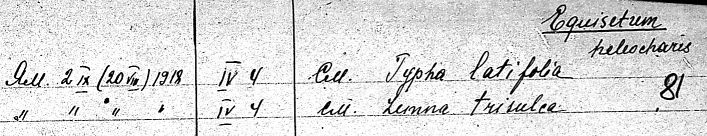 Equisetum
heleocharis
Ям. 2 IX (20 VIII) 1918 IV 4 См. Typha latifolia 81
" " " " IV 4 см. Lemna trisulca